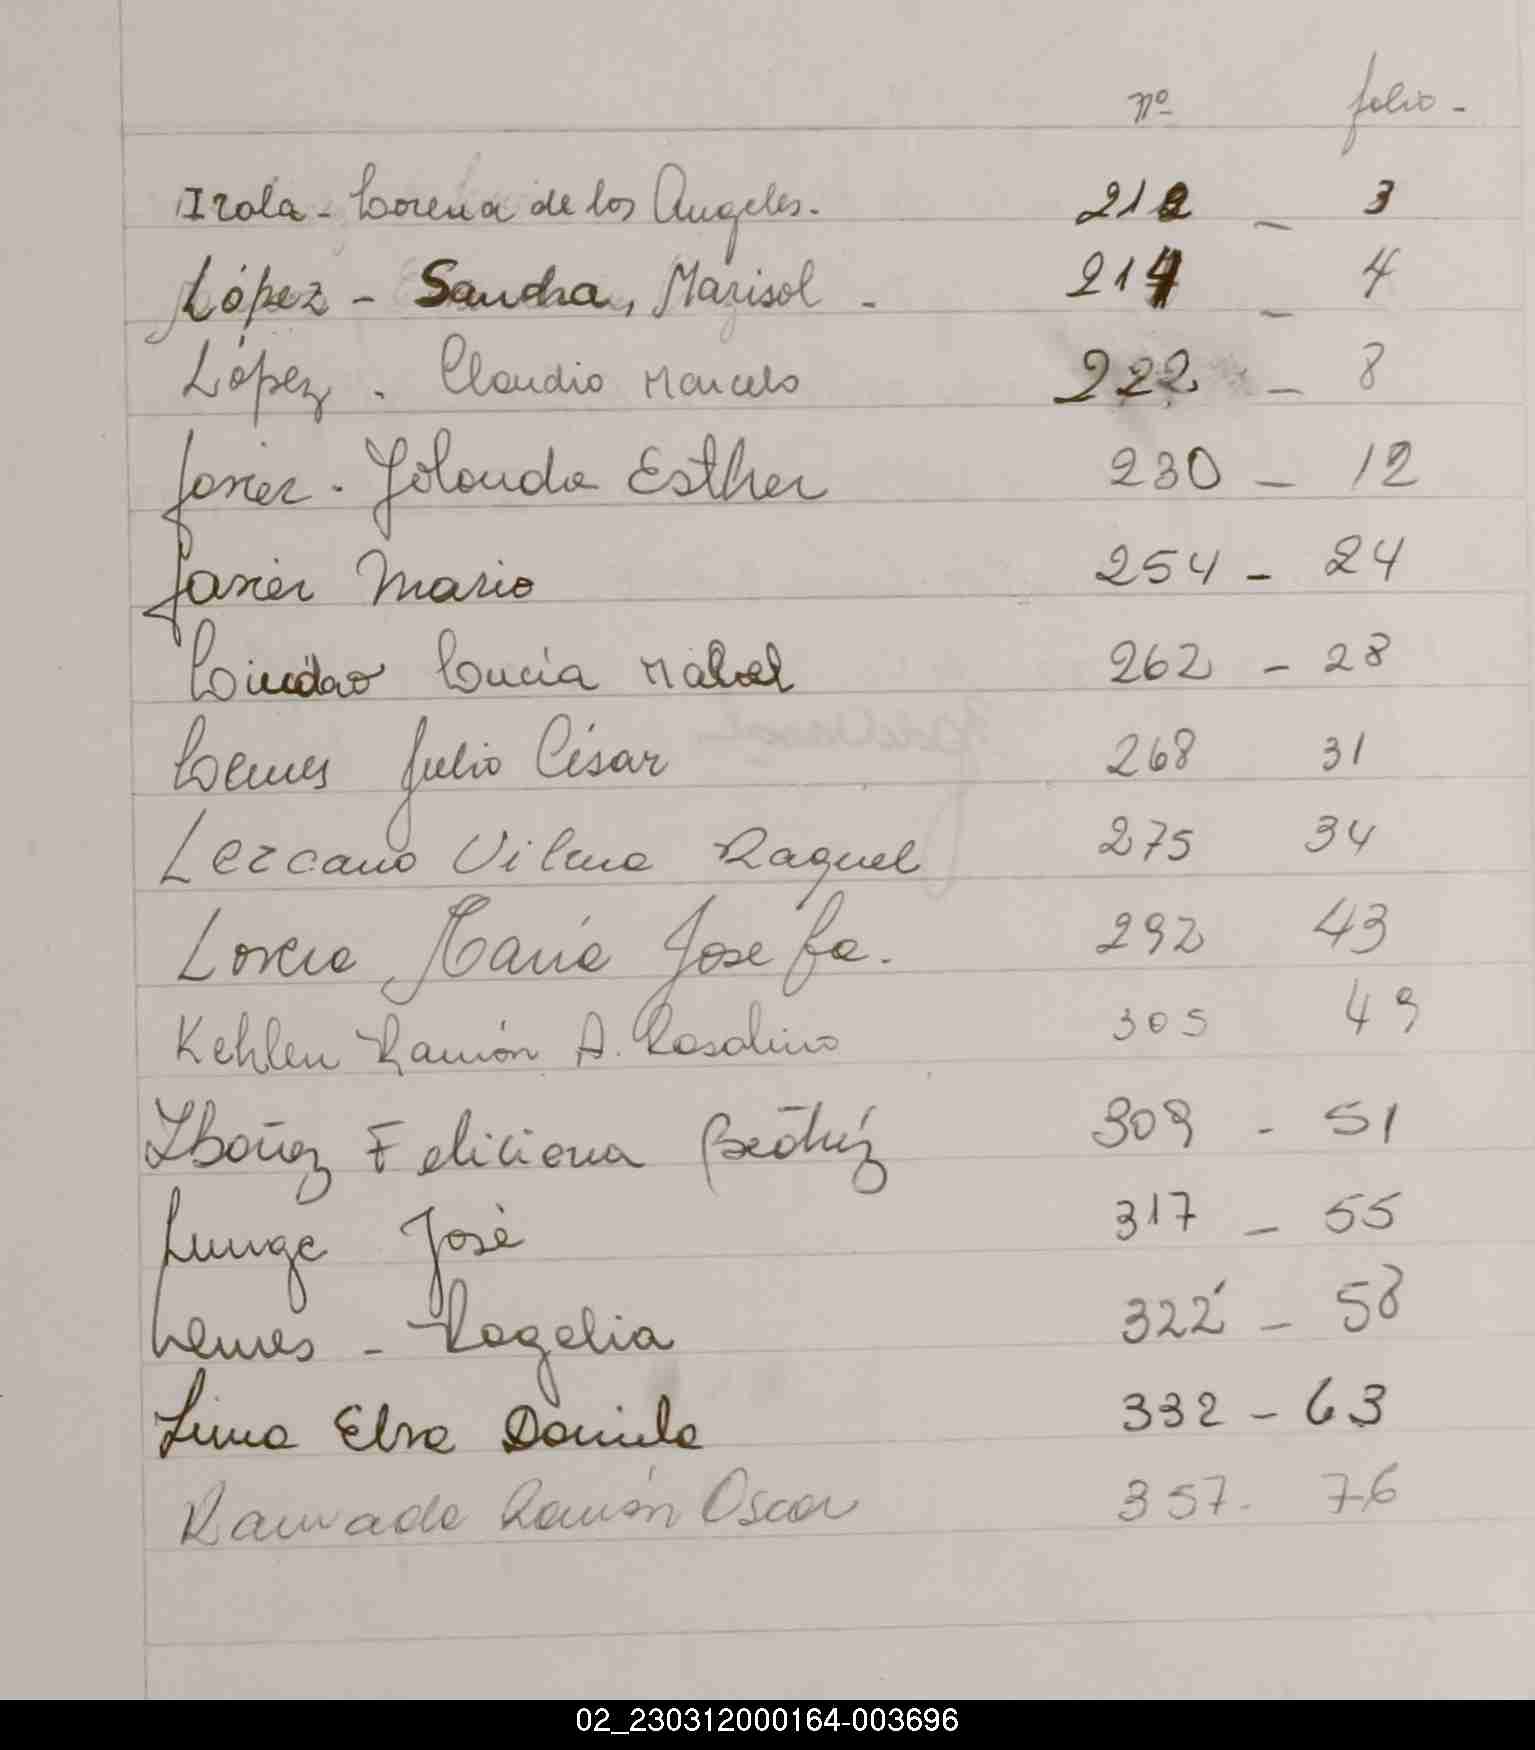 nº folio -
Irala - Lorena de los Angeles. 212 - 3
López - Sandra, Marisol - 214 - 4
López - Claudio Marcelo 222 - 8
Javier - Yolanda Esther 230 - 12
Javier Mario 254 - 24
Lucía Mabel 262 - 28
Lemes Julio César 268 31
Lezcano Vilma Raquel 275 34
María Josefa. 292 43
Kehler Ramón A. Rosalino 305 49
Ibañez Feliciana Beatríz 309 - 51
Lunge José 317 - 55
Lemes - Rogelia 322 - 58
Lima Elsa Daniela 332 - 63
Ramón Oscar 357 - 76
02_230312000164-003696